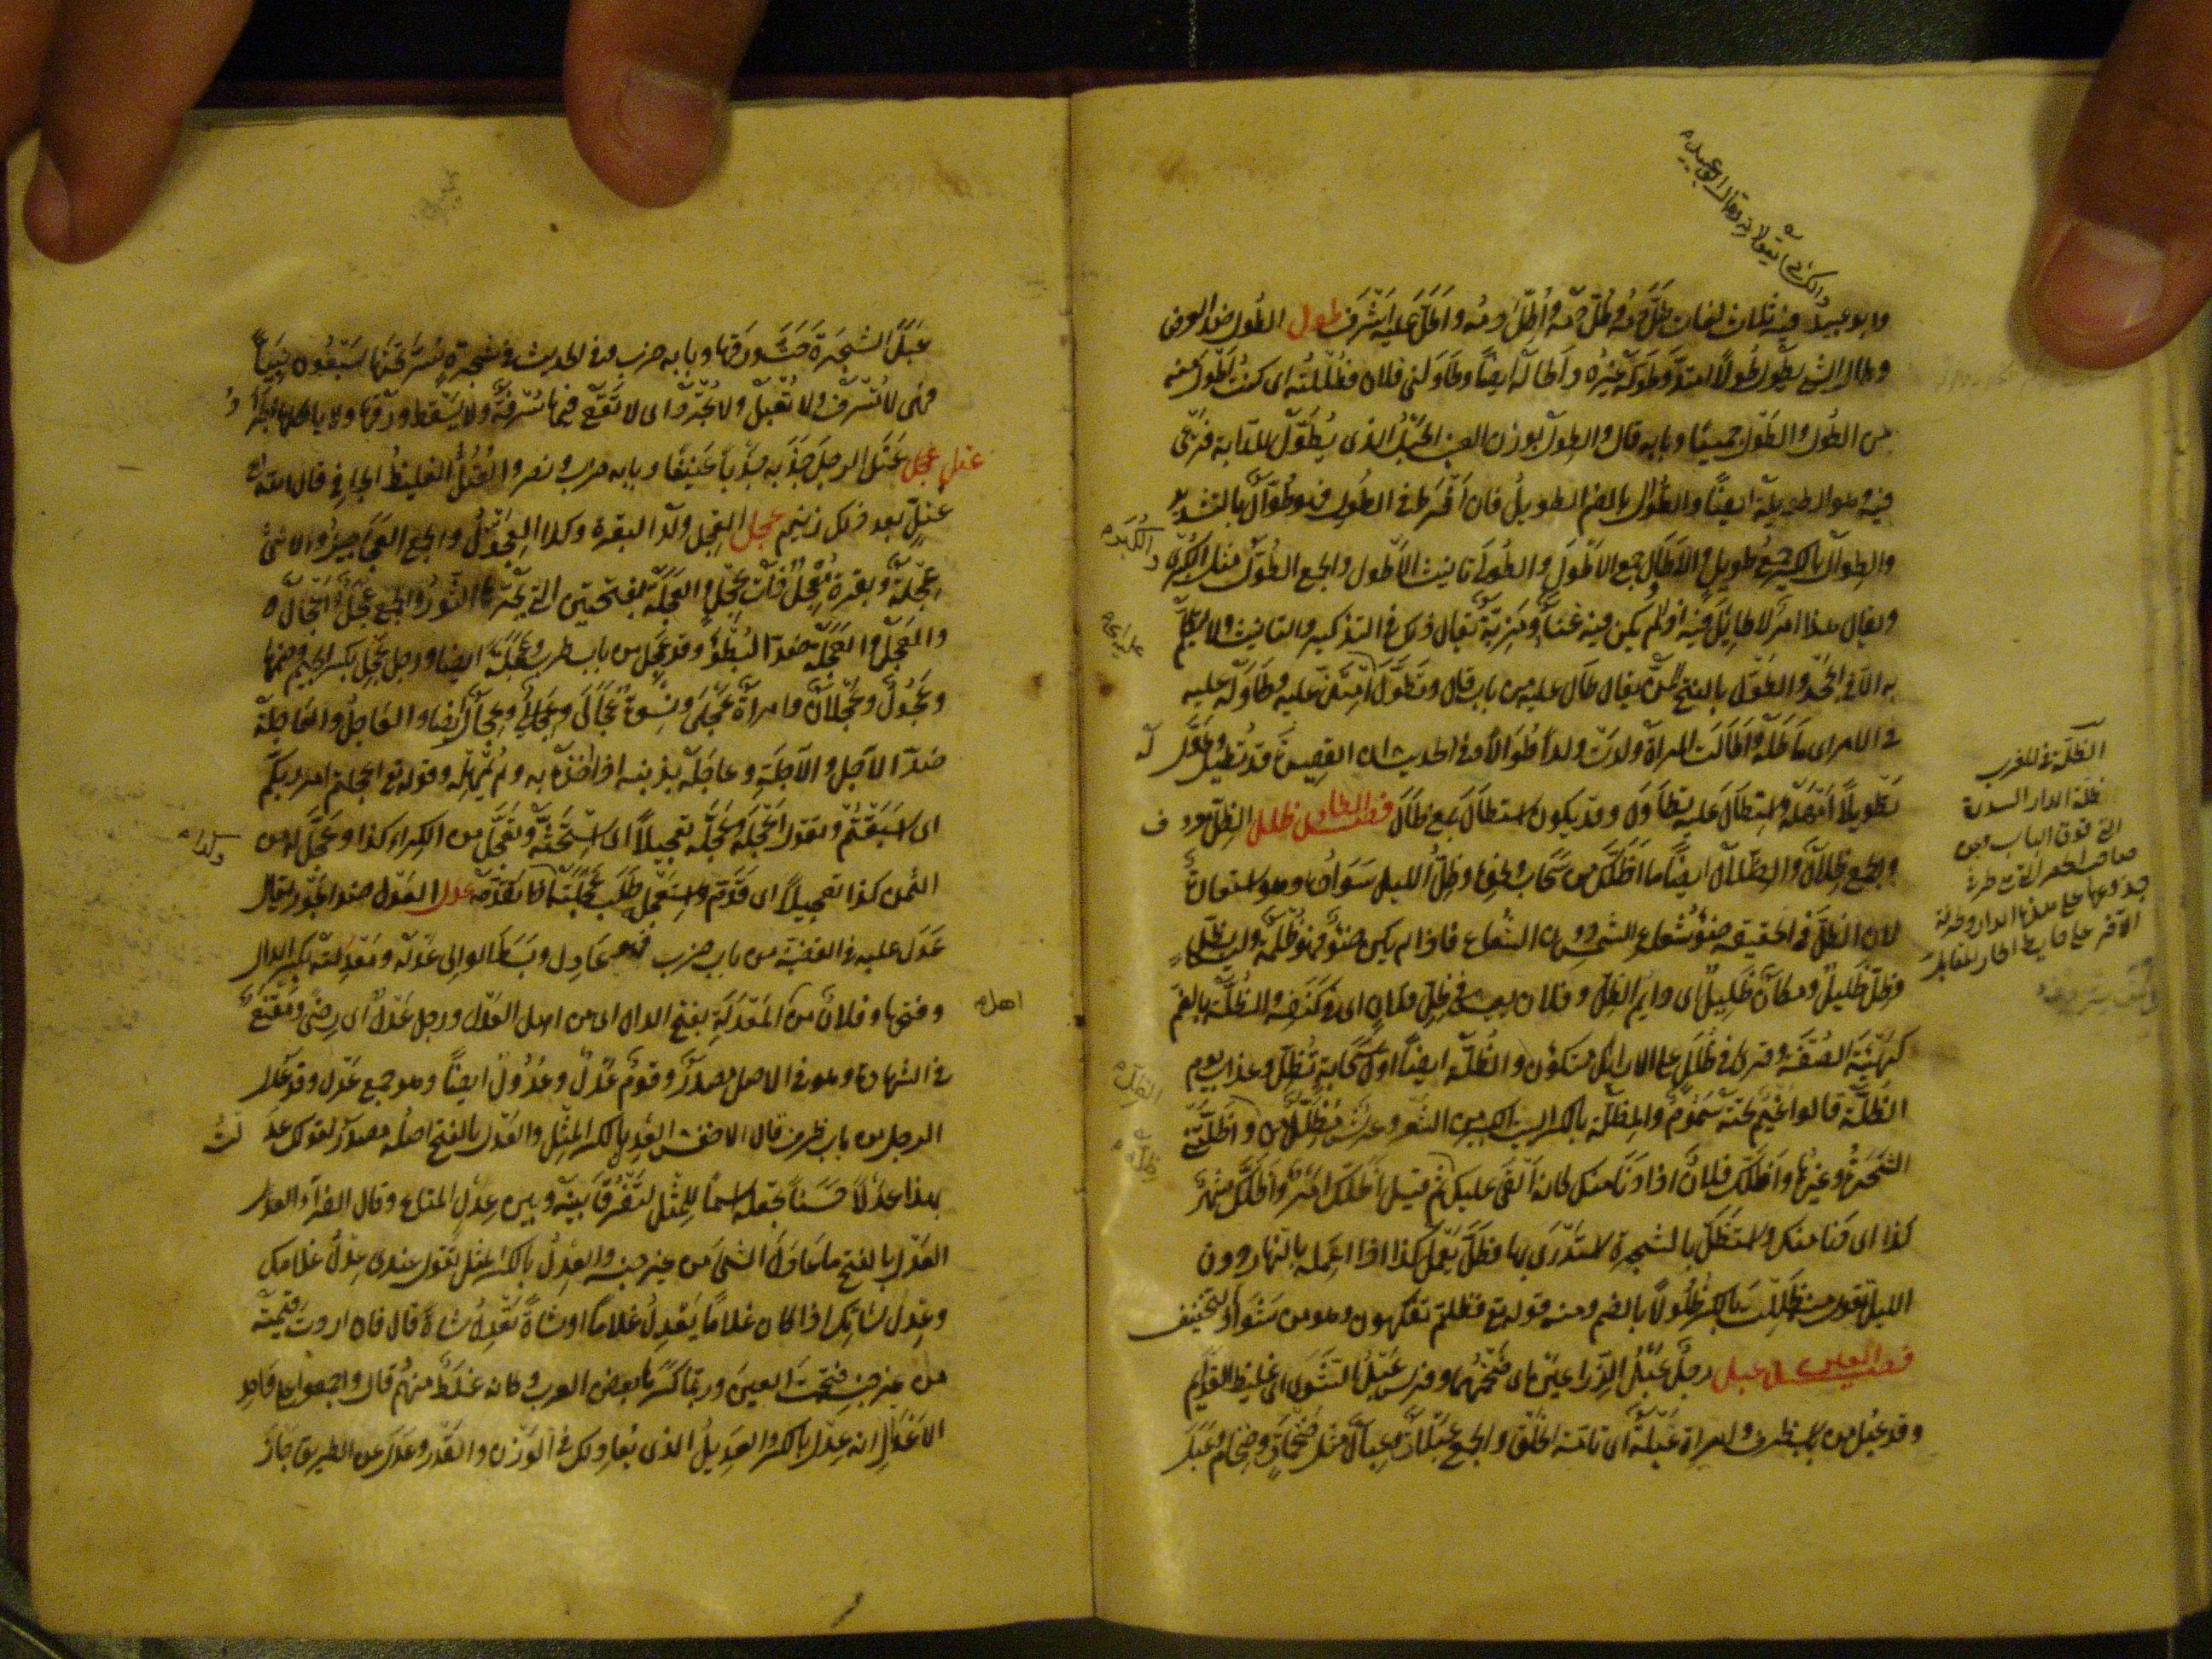 وابو عبيد فيه ثلاث لغات طَلَّ دمُه وطُلَّ دمُه وأُطِلَّ دمُه وأَطَلَّ عليه أَشْرَفَ طول الطُول ضد العرض
وطال الشئ يطول طُولاً امتدّ وطَوَّلَه غيرُه وأَطالَه ايضاً وطَاوَلَني فلان فطُلْتُه اى كنت أَطْوَلَ منه
من الطُول والطَوْل جميعًا وبابه قال والطِوَل بوزن العنب الحَبْلُ الذى يُطَوَّل للدابة فترعى
فيه وهو الطويلة ايضًا والطُوَالُ بالضم الطويلُ فان أَفْرَطَ فى الطول فهو طُوَّالٌ بالتشديد
والطِوَال بالكسر جمع طويل والأَطَاوِل جمع الأَطْوَل والطُولَى تانيث الأَطْوَل والجمع الطُوَل مثل الكُبْرَى
والكُبَر
ويقال هذا امرٌ لا طائلَ فيه اذا لم يكن فيه غَنَاءٌ ومَزِيَّةٌ يقال ذلك فى التذكير والتانيث ولا يُتَكَلَّم
به الا فى الجَحْد والطَوْل بالفتح المَنُّ يقال طَالَ عليه من باب قال وتَطَوَّلَ امتنّ عليه وطَاوَلَه
فى الامر اى ماطَلَه وأَطَالَت المرأة ولدت ولداً طُوَالاً وفى الحديث ان القصيرة قد تُطِيل وطَوَّلَ له
تَطْوِيلاً أَمْهَلَه واستطال عليه تطاوَل وقد يكون استطال بمعنى طَالَ فصل الظاء ظلل الظِلّ معروف
والجمع ظِلال والظِلال ايضًا ما اظَلَّك من سَحَاب ونحوه وظِلُّ الليل سَوَادُه وهو استعارة
لان الظِلَّ فى الحقيقة ضوءُ شعاع الشمس دون الشعاع فاذا لم يكن ضوءٌ فهو ظُلْمَة وليس بظِلّ
وظِلٌّ ظَلِيلٌ ومكانٌ ظَلِيلٌ اى دائم الظل وفلان يعيش فى ظِلّ فلان اى فى كَنَفه والظُلَّة بالضم
كهَيْئَة الصُفَّة وقرئ فى ظُلَلٍ على الارائك متكؤن والظُلَّة ايضًا اول سحابة تُظِلّ وعذاب يوم
الظُلَّة قالوا غَيْمٌ تحته سَمُومٌ والمِظَلَّة بالكسر البيت الكبير من الشعر وعرش مُظَلَّل من الظِلّ وأَظَلَّتْنى
الشجرةُ وغيرُها وأَظَلَّك فلان اذا دَنَا منك كانه أَلْقَى عليك ظِلَّه ثم قيل أَظَلَّك امرٌ وأَظَلَّك شهرُ
كذا اى دنا منك واستظلّ بالشجرة استَذْرَى بها وظَلَّ يَعْمَل كذا اذا عَمِلَه بالنهار دون
الليل تقول منه ظَلِلْتُ بالكسر ظُلُولاً بالضم ومنه قوله تع فظلتم تفكهون وهو من شَوَاذّ التخفيف
فصل العين عبل رجلٌ عَبْلُ الذِّراعَيْن اى ضَخْمُهما وفرس عَبْلُ الشَّوَى اى غليظ القَوَائِم
وقد عَبُلَ من باب ظرف وامراة عَبْلَةٌ اى تامّة الخَلْق والجمع عَبْلاتٌ وعِبَالٌ مثل ضَخْماتٍ وضِخَامٍ وعَبَلَ
والكسائى يقولانه وقال ابو عبيد
الظلة فى المغرب
ظلة الدار السدة
التى فوق الباب وعن
صاحب الحصر التى طرف
جذوعها على هذه الدار وطرفه
الآخر على حايط الجار المقابل
عَبَلَ الشجرةَ حَتَّ ورقَها وبابه ضرب وفى الحديث فى شجرةٍ سُرَّ تحتَها سبعُون نَبِيًّا
فهى لا تُسْرَف ولا تُعْبَل ولا تُجْرَد اى لا تَقَع فيها سُرْفَةٌ ولا يَسْقُط ورقُها ولا ياكلها الجَرَادُ
عتل عَتَلَ الرجلَ جَذَبَه جَذْبًا عَنِيفًا وبابه ضرب ونصر والعُتُلُّ الغليظُ الجافى قال الله تع
عُتُلٍّ بعد ذلك زنيم عجل العِجْل ولد البقرة وكذا العِجَّوْلُ والجمع العَجَاجِيلُ والانثى
عِجْلَةٌ وبقرة مُعْجِلٌ ذات عِجْلٍ والعَجَلَة بفتحتين التى يَجُرُّها الثور والجمع عَجَلٌ وأَعْجَالٌ
والعَجَلُ والعَجَلَة ضدّ البُطْؤ وقد عَجِلَ من باب طرب وعَجَلَة ايضا ورجل عَجِلٌ بكسر الجيم وضمها
وعَجُولٌ وعَجْلانُ وامراةٌ عَجْلَى ونسوة عَجَالَى وعِجَالٌ ايضا والعَاجِلُ والعَاجِلَة
ضدّ الآجِل والآجِلَة وعَاجَلَه بذنبه اذا أَخَذَه به ولم يُمْهِلْه وقوله تع اعجلتم امر ربكم
اى اسَبَقْتُم وتقول أَعْجَلَه وعَجَّلَه تعجيلاً اى اسْتَحَثَّه وتعَجَّلَ من الكِراء كذا وعَجَّلَ له من
الثمن كذا تعجيلاً اى قَدَّم واستَعْجَلَه طلَب عَجَلَتَه وكذا اذا تقدَّمه عدل العَدْل ضد الجَوْر يقال
عَدَلَ عليه فى القضيّة من باب ضرب فهو عَادِل وبَسَطَ الوالى عَدْلَه ومَعْدِلَتَه بكسر الدال
وفتحها وفلان من أهل المَعْدَلَة بفتح الدال اى من اهل العَدْل ورجل عَدْلٌ اى رِضًى ومَقْنَعٌ
فى الشهادة وهو فى الاصل مصدرٌ وقوم عَدْلٌ وعُدُولٌ ايضًا وهو جمع عَدْل وقد عَدُل
الرجل من باب ظرف قال الاخفش العِدْلُ بالكسر المِثْل والعَدْل بالفتح اصله مصدر لقولك عَدَلْتُ
بهذا عَدْلاً حَسَناً تجعله اسمًا للمِثْل لتفرّق بينه وبين عِدْل المتاع وقال الفراء
العَدْل بالفتح ما عَادَلَ الشئَ من غير جنسه والعِدْلُ بالكسر المِثْل تقول عندى عِدْلُ غلامك
وعِدْل شاتك اذا كان غلامًا يَعْدِلُ غلامًا او شاةً تَعْدِلُ شاةً قال فان اردت قيمتَه
من غير جنسه فتحت العينَ وربّما كَسَرَها بعض العرب وكانه غَلَطٌ منهم قال واجمعوا على واحد
الأَعْدَالِ انه عِدْل بالكسر والعَدِيلُ الذى يُعَادِلُك فى الوَزْن والقَدْر وعَدَل عن الطريق جَارَ